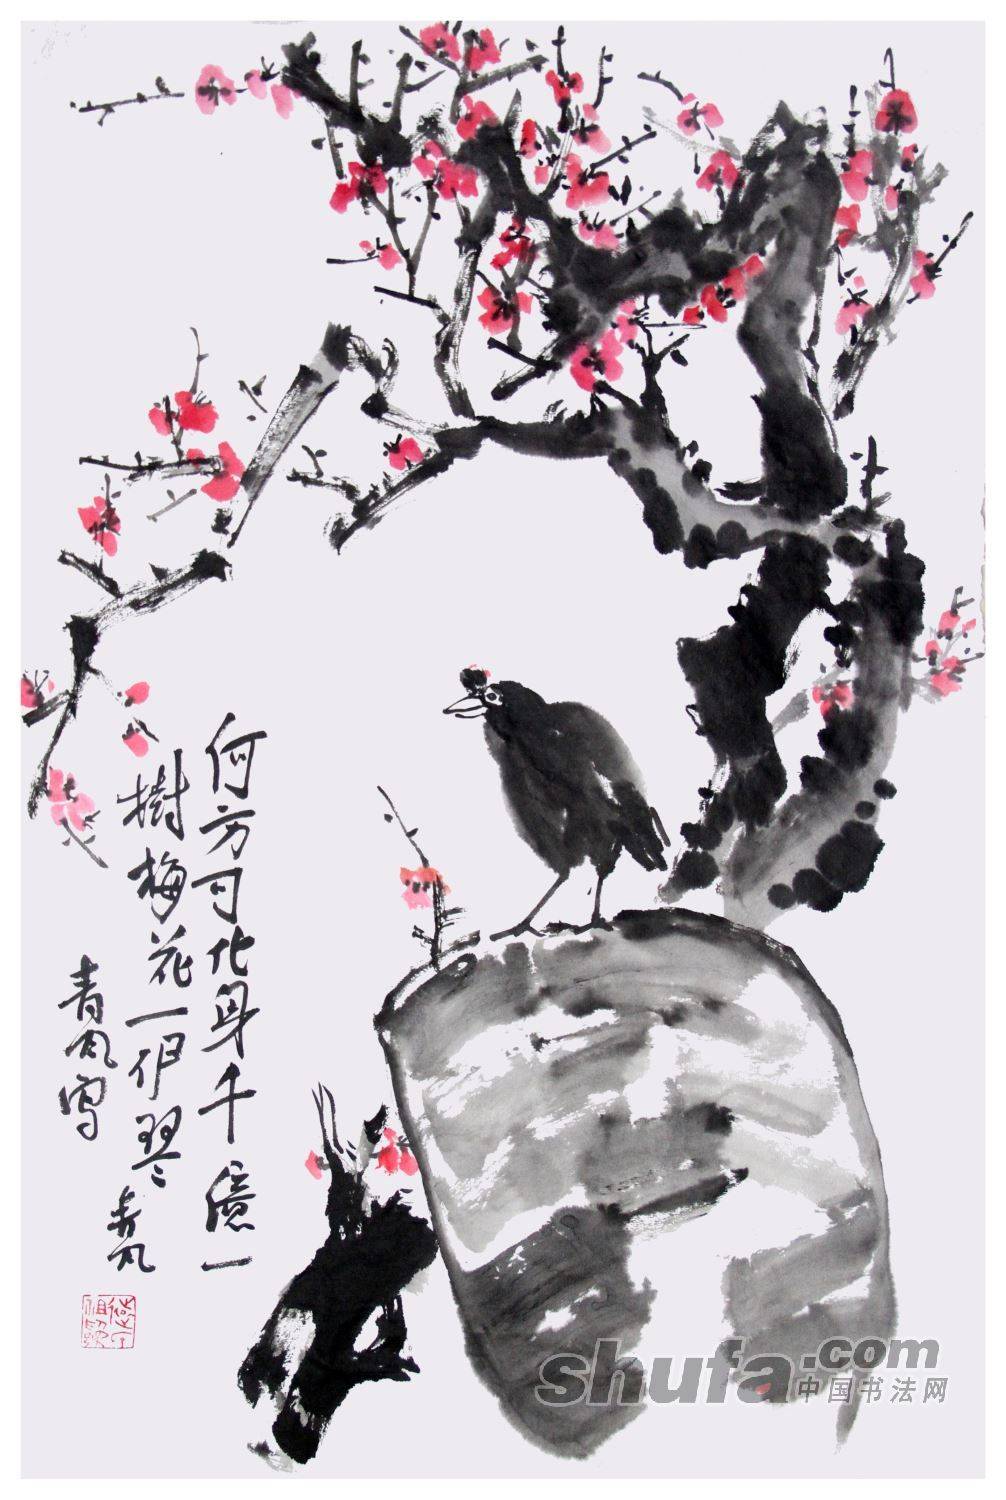 何方可化身千億一
樹梅花一
青风写
shufa.com
中国书法网